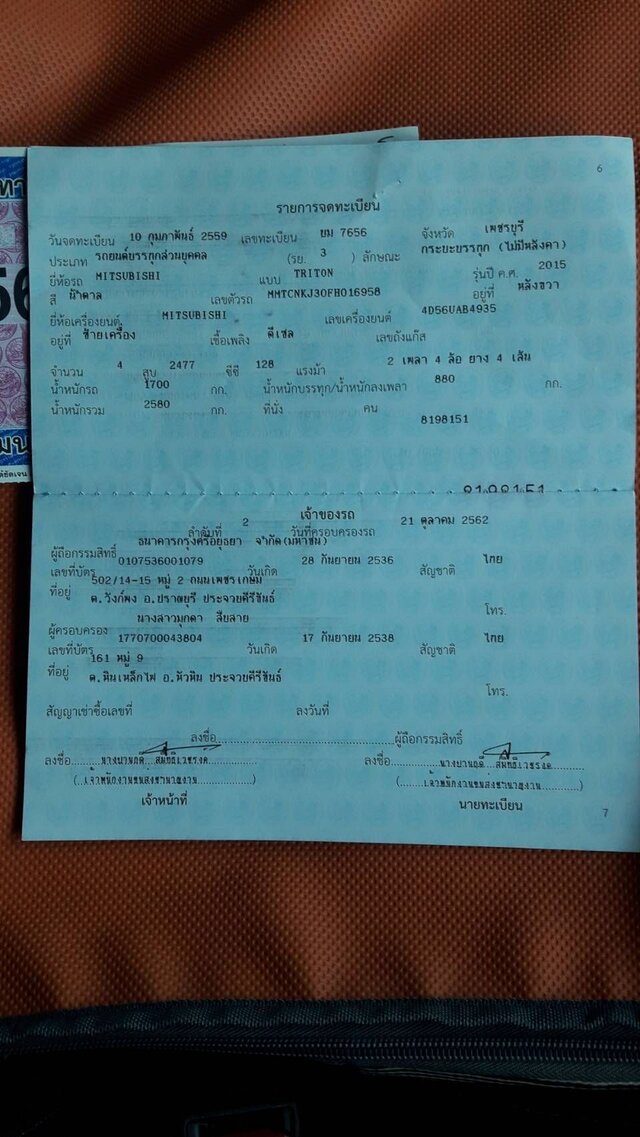 6
รายการจดทะเบียน
วันจดทะเบียน 10 กุมภาพันธ์ 2559 เลขทะเบียน ยม 7656 จังหวัด เพชรบุรี
ประเภท รถยนต์บรรทุกส่วนบุคคล (รย. 3 ) ลักษณะ กระบะบรรทุก (ไม่มีหลังคา)
ยี่ห้อรถ MITSUBISHI แบบ TRITON รุ่นปี ค.ศ. 2015
สี น้ำตาล เลขตัวรถ MMTCNKJ30FH016958 อยู่ที่ หลังขวา
ยี่ห้อเครื่องยนต์ MITSUBISHI เลขเครื่องยนต์ 4D56UAB4935
อยู่ที่ ซ้ายเครื่อง เชื้อเพลิง ดีเซล เลขถังแก๊ส
จำนวน 4 สูบ 2477 ซีซี 128 แรงม้า 2 เพลา 4 ล้อ ยาง 4 เส้น
น้ำหนักรถ 1700 กก. น้ำหนักบรรทุก/น้ำหนักลงเพลา 880 กก.
น้ำหนักรวม 2580 กก. ที่นั่ง คน
8198151
เจ้าของรถ
ลำดับที่ 2 วันที่ครอบครองรถ 21 ตุลาคม 2562
ผู้ถือกรรมสิทธิ์ ธนาคารกรุงศรีอยุธยา จำกัด(มหาชน)
เลขที่บัตร 0107536001079 วันเกิด 28 กันยายน 2536 สัญชาติ ไทย
ที่อยู่ 502/14-15 หมู่ 2 ถนนเพชรเกษม
ต.วังก์พง อ.ปราณบุรี ประจวบคีรีขันธ์ โทร.
ผู้ครอบครอง นางสาวมุกดา สืบสาย
เลขที่บัตร 1770700043804 วันเกิด 17 กันยายน 2538 สัญชาติ ไทย
ที่อยู่ 161 หมู่ 9
ต.หินเหล็กไฟ อ.หัวหิน ประจวบคีรีขันธ์
โทร.
สัญญาเช่าซื้อเลขที่ ลงวันที่
ลงชื่อ ผู้ถือกรรมสิทธิ์
ลงชื่อ ลงชื่อ
(เจ้าพนักงานขนส่งชำนาญงาน) (เจ้าพนักงานขนส่งชำนาญงาน)
เจ้าหน้าที่ นายทะเบียน
7